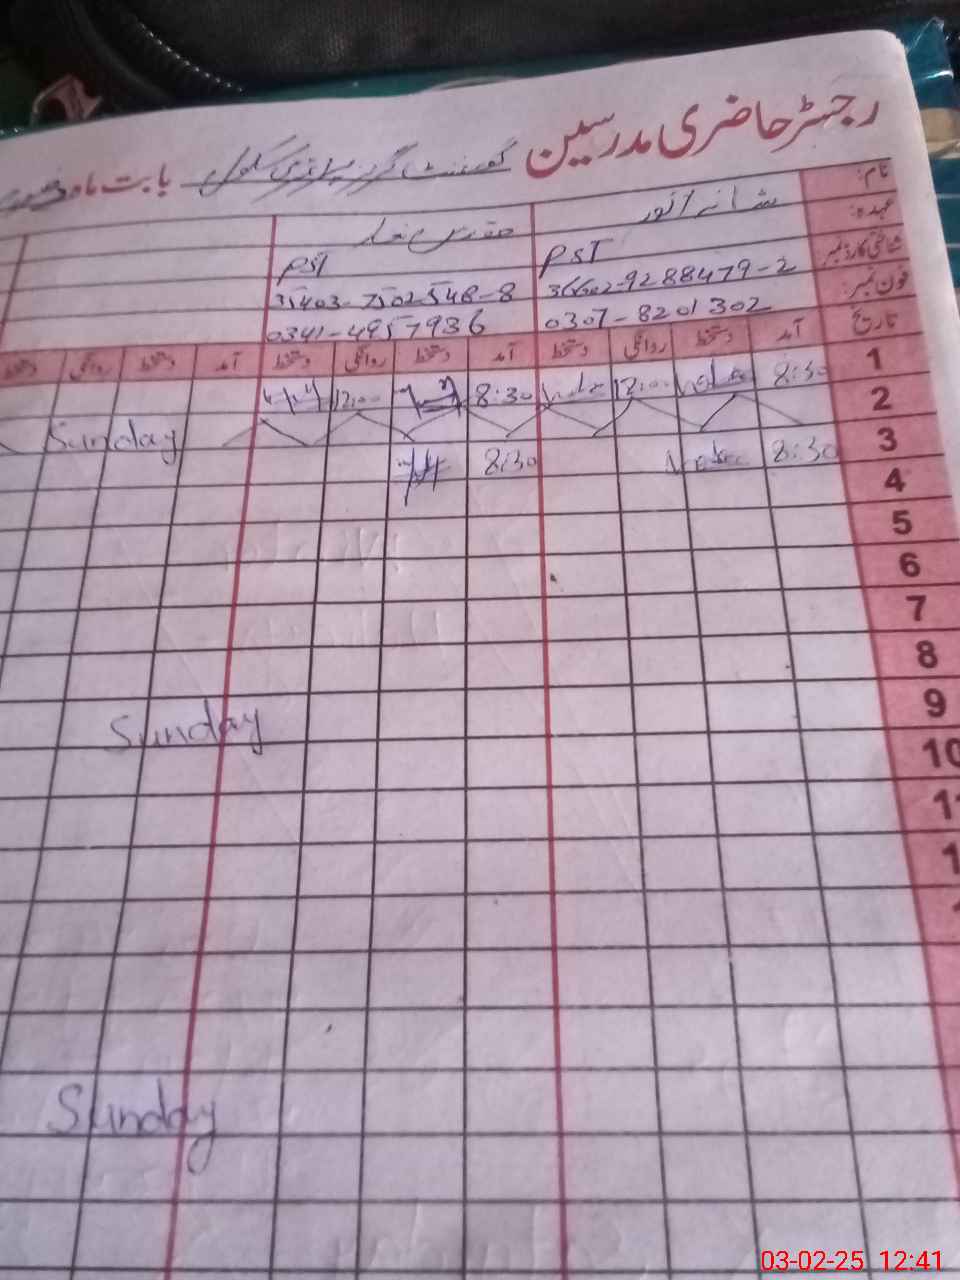 رجسٹر حاضری مدرسین گورنمنٹ گرلز پرائمری سکول بابت ماہ
نام: شبانہ انور
عہدہ: PST PST
شناختی کارڈ نمبر 36602-9288479-2 35403-7502548-8
فون نمبر: 0307-8201302 0341-4957936
تاریخ آمد دستخط روانگی دستخط آمد دستخط روانگی دستخط آمد دستخط روانگی دستخط
1 8:30 12:00 8:30 12:00
2 Sunday
3 8:30 8:30
4
5
6
7
8
9 Sunday
10
Sunday
03-02-25 12:41